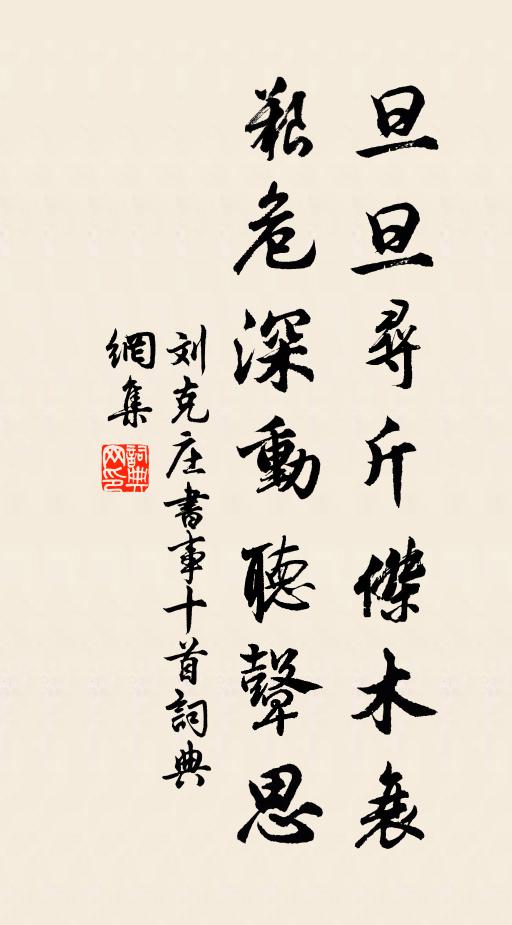 旦旦尋斤傑木衰
艱危深動聽鼙思
刘克庄書事十首詞典
網集
詞典
网印